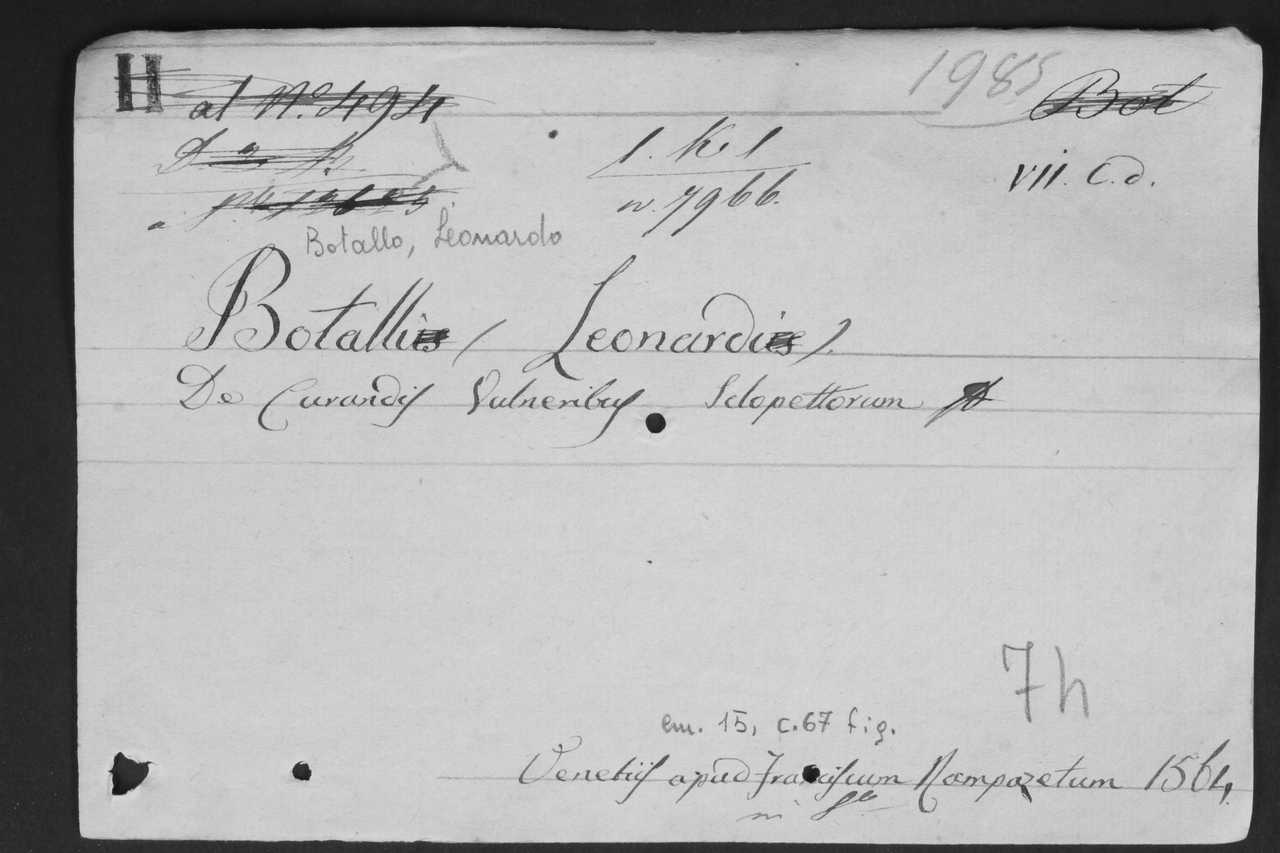 H al N.° 494 1985 Bot
1. K. 1
n. 7966. VII. C.d.
Botallo, Leonardo
Botalli ( Leonardi ).
De Curandis Vulneribus Sclopettorum
7h
cm. 15, c. 67 fig.
Venetiis apud Franciscum Rampazetum 1564.
in 8°